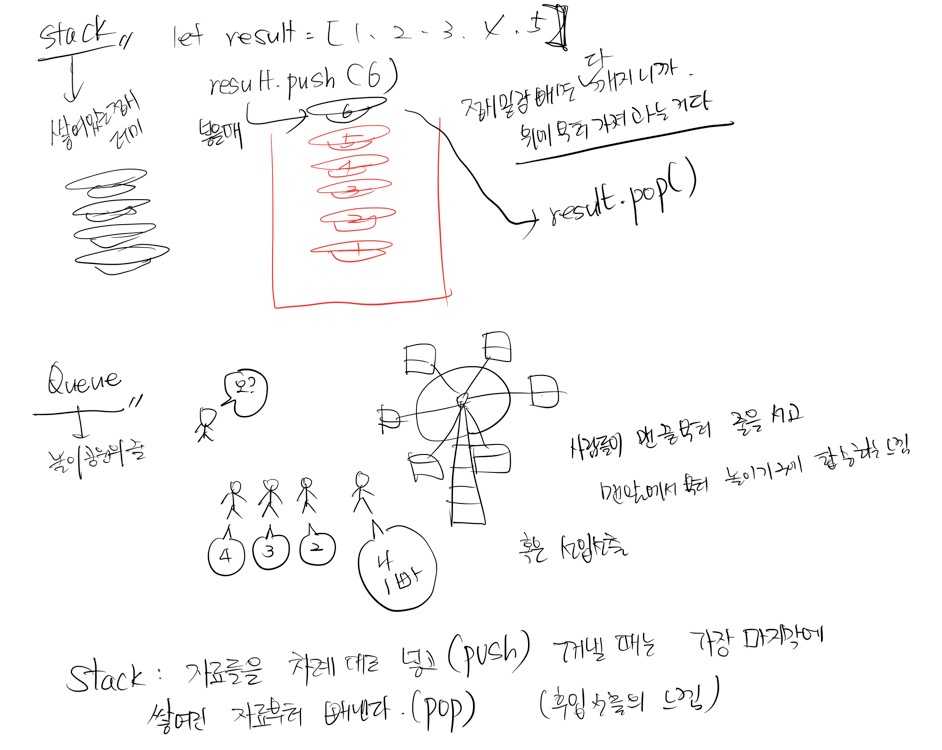 stack
let result = [1. 2. 3. 4. 5]
result.push(6)
쌓여있는접시
더미
넣을때
6
5
4
3
2
1
다
접시 밑장 빼면 깨지니까.
위에부터 가져가는거다
result.pop()
Queue
놀이공원의 줄
오?
4
3
2
나
1빠
사람들이 맨끝부터 줄을 서고
맨앞에서부터 놀이기구에 탑승하는 느낌
혹은 선입선출
Stack : 자료를을 차례대로 넣고 (push) 꺼낼 때는 가장 마지막에
쌓여진 자료부터 빼낸다. (pop) (후입선출의 느낌)